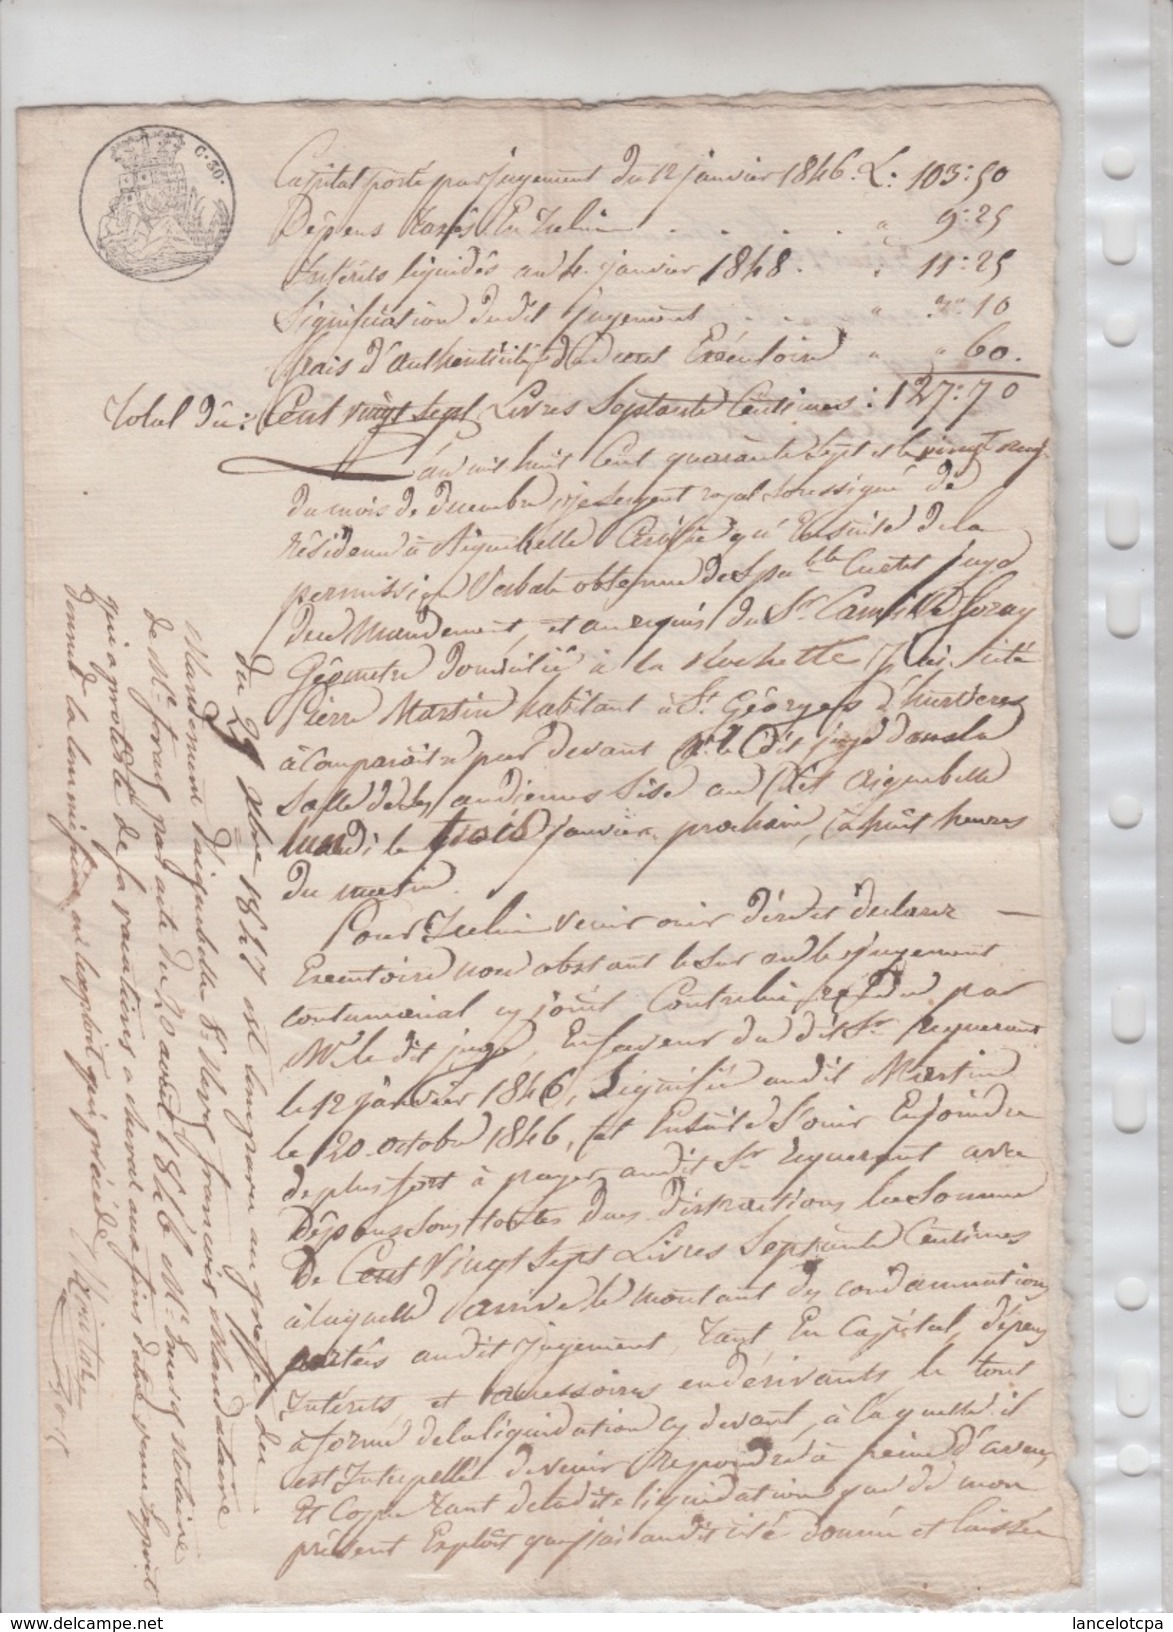 C. 50.
Capital porté par jugement du 12 janvier 1846. L. 103:50
Dépens taxés en icelui . . . . " 9:25
Intérêts liquidés au 4 janvier 1848 . " 11:25
Signification dudit jugement . . . " " 10
frais d'authenticité exécutoire " " 60.
Total dû : Cent vingt sept Livres Septante Centimes : 127:70
L'an mil huit Cent quarante Sept et le vingt neuf
du mois de décembre, je Sergent royal Soussigné de
résidence à Aiguebelle Certifie qu'Ensuite de la
permission Verbale obtenue de Spble Curtet juge
de ce Mandement, et au requis du Sr Camille foray
Géomètre domicilié à la Rochette J'ai Cité
Pierre Martin habitant à St Géorges d'hurtieres
à Comparaître par devant Mr le dit juge dans la
Salle de Ses audiences Sise au dit Aiguebelle
lundi le trois janvier prochain, à huit heures
du matin.
Pour Icelui venir ouir dire et déclarer
Exécutoire nonobstant le jugement
contumacial cy joint Contre lui rendu par
Mr le dit juge, En faveur du dit Sr requerant
le 12 janvier 1846, Signifié audit Martin
le 20 octobre 1846, et Ensuite S'ouir Enjoindre
de plus fort à payer audit Sr requerant avec
Dépens Sous toutes dues distractions la Somme
De Cent Vingt Sept Livres Septante Centimes
à laquelle arrive le montant des condamnations
portées audit jugement, tant En Capital, dépens
Intérêts, et accessoires en dérivants le tout
à forme de la liquidation cy devant, à laquelle il
est Interpellé de venir Répondre à peine d'aveu
Et Copie tant de la dite liquidation que de mon
présent Exploit que j'ai audit cité donnée et laissée
Du 29 Xbre 1847 est comparu au greffe du
Mandement d'aiguebelle Sr francois Mandataire
de Mr foray par acte du 20 août 1846 Mr notaire
qui a protesté de sa vacation à cheval aux fins d'être venu
donner la commission en l'exploit qui précède